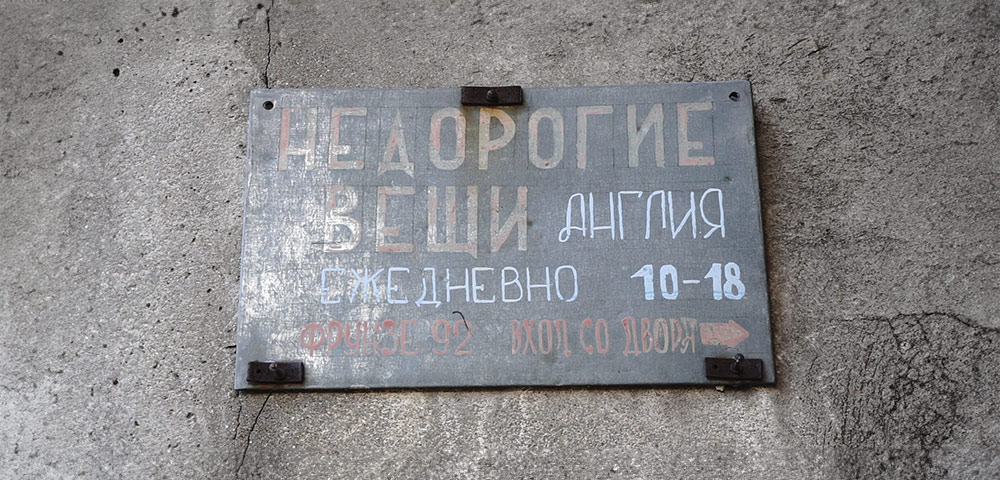 НЕДОРОГИЕ
ВЕЩИ АНГЛИЯ
ЕЖЕДНЕВНО 10-18
ФРУНЗЕ 92 ВХОД СО ДВОРА